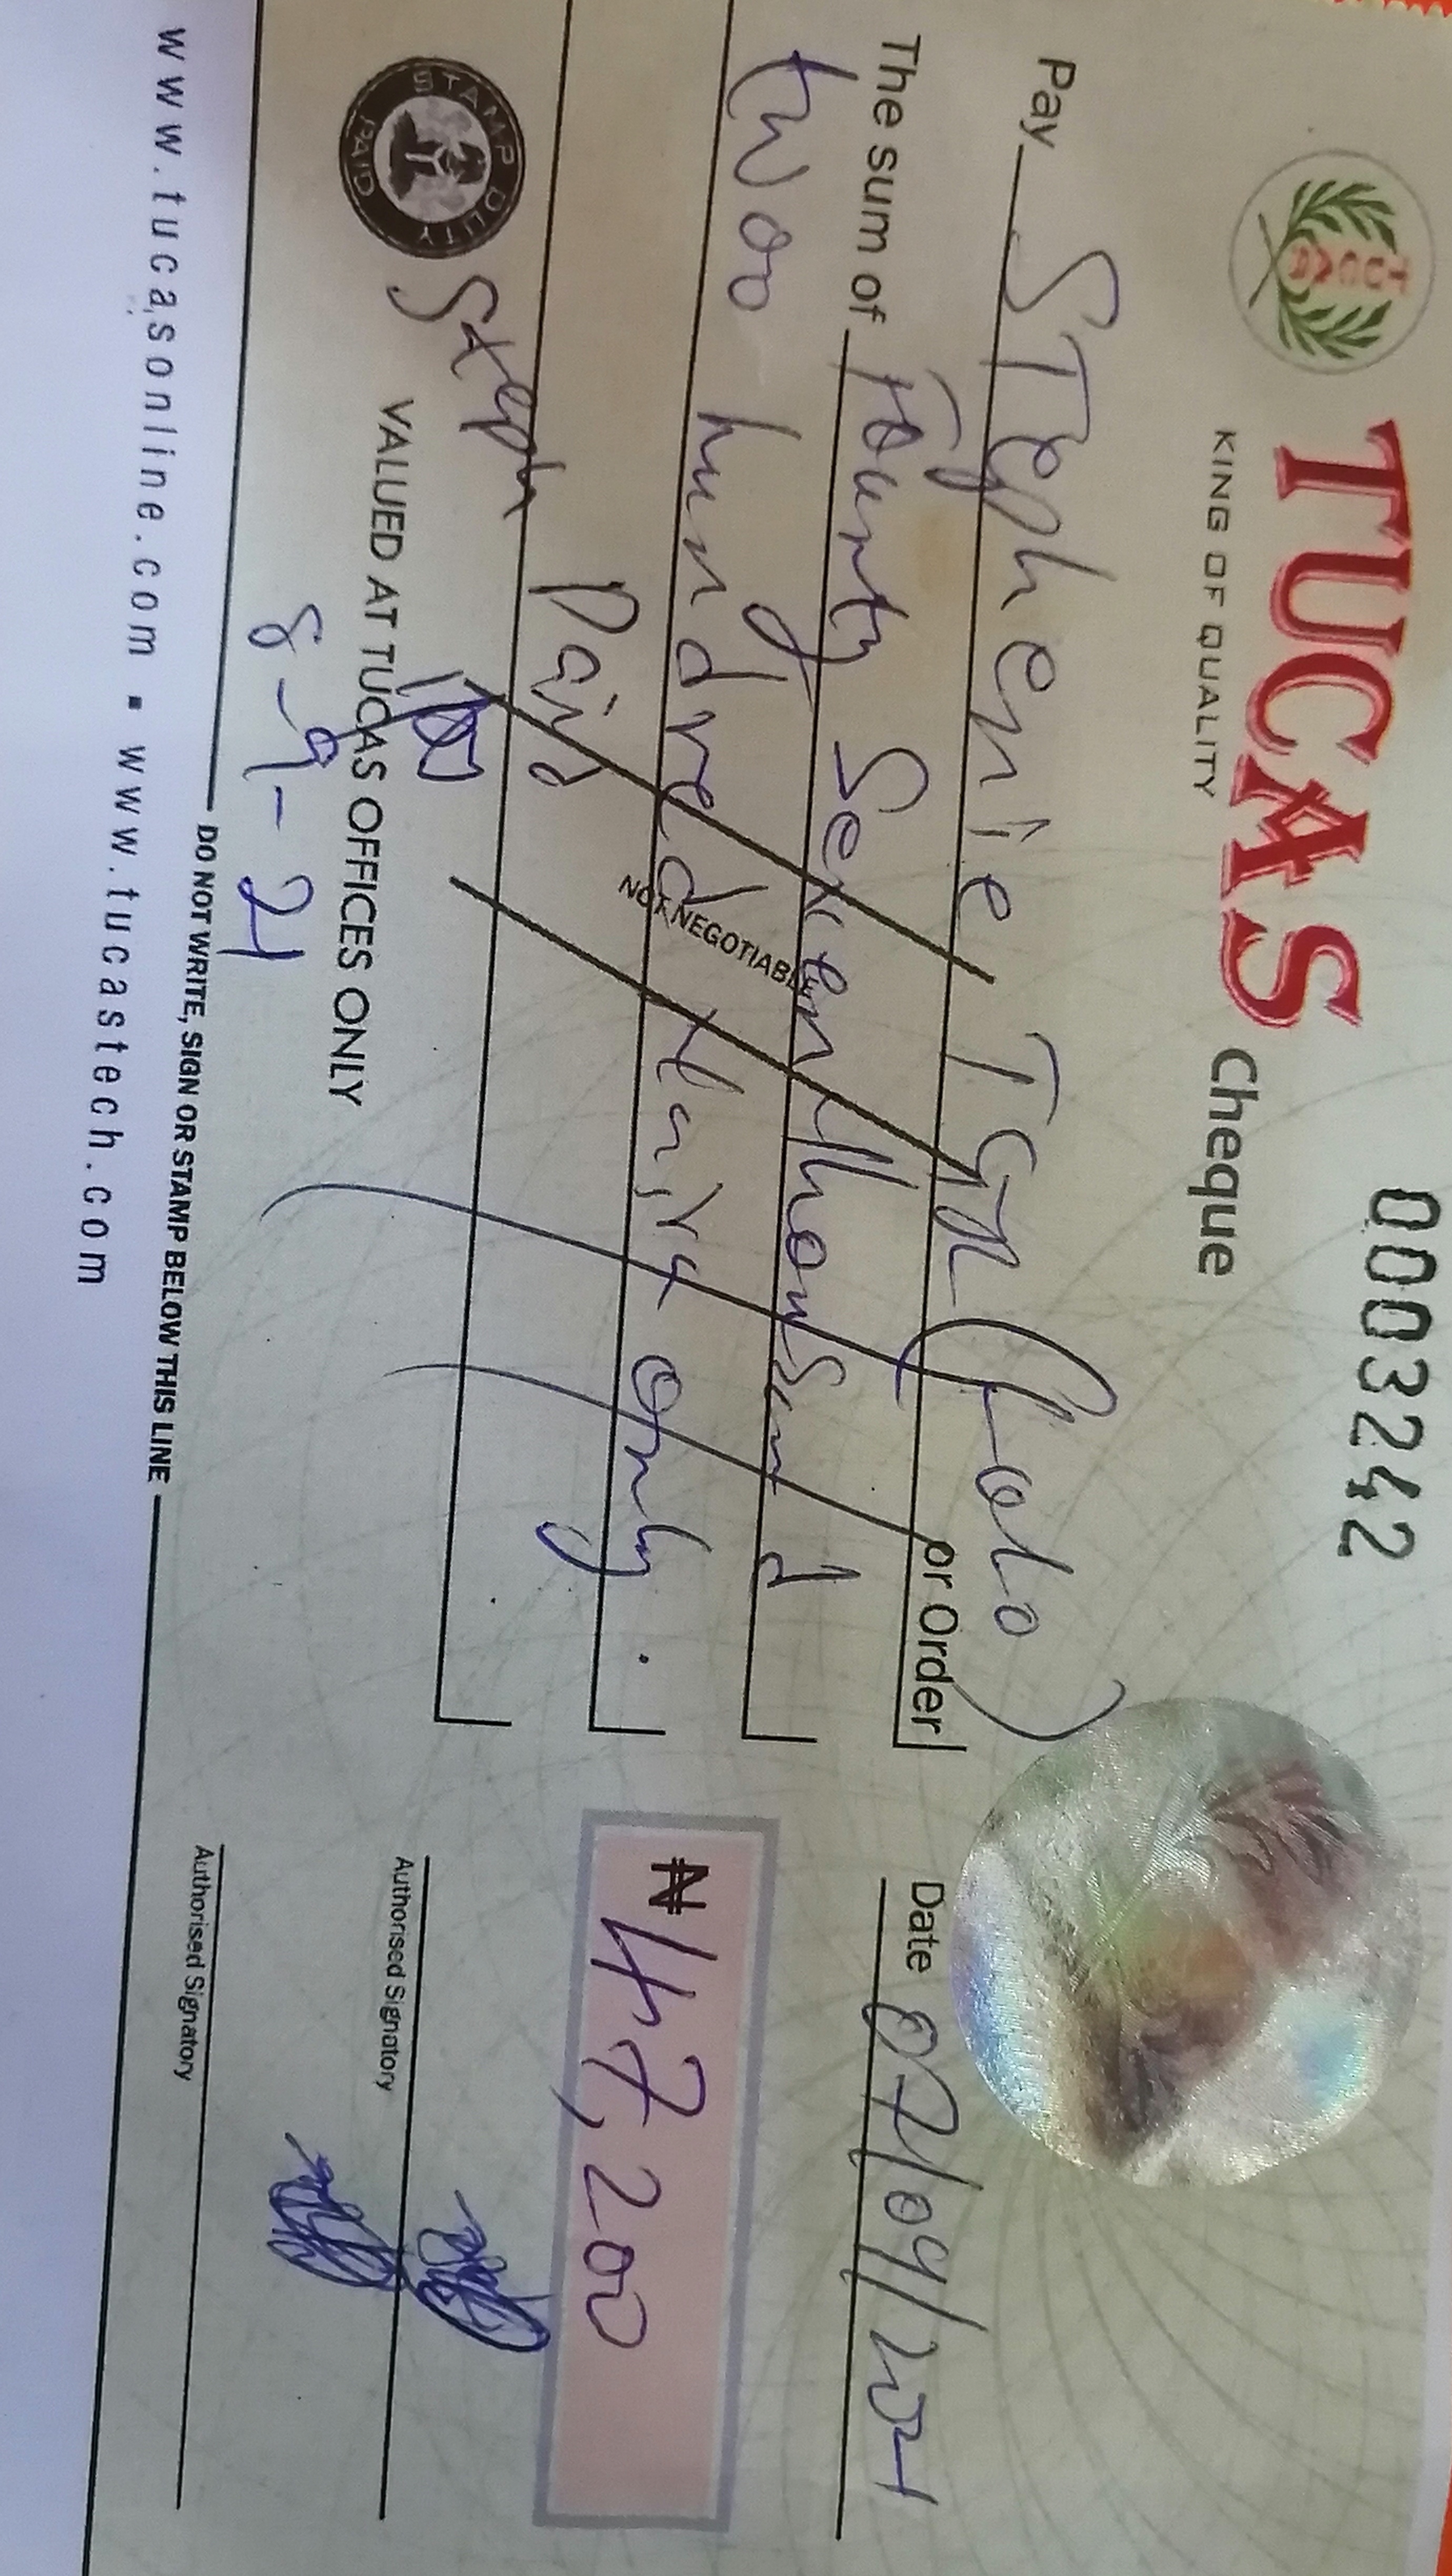 TUCAS Cheque 0003242
KING OF QUALITY
TUCAS
Pay Stephenie Tsn (Lolo) or Order
Date 07/09/2021
The sum of Fourty Seven thousand
twoo hundred Naira only.
NOT NEGOTIABLE
₦ 47,200
Paid
Steph
STAMP DUTY PAID
VALUED AT TUCAS OFFICES ONLY
8-9-21
Authorised Signatory
Authorised Signatory
DO NOT WRITE, SIGN OR STAMP BELOW THIS LINE
www.tucasonline.com ▪ www.tucastech.com